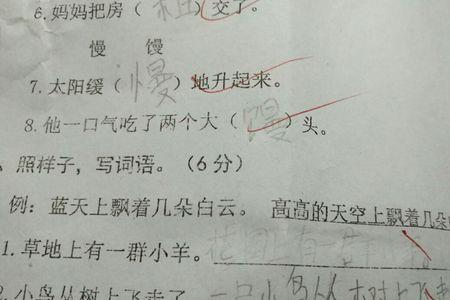 6.妈妈把房（租）交了。
慢 馒
7.太阳缓（慢）地升起来。
8.他一口气吃了两个大（馒）头。
、照样子，写词语。（6分）
例：蓝天上飘着几朵白云。 高高的天空上飘着几朵
1.草地上有一群小羊。
2.小鸟从树上飞走了 一只小鸟从树上飞走